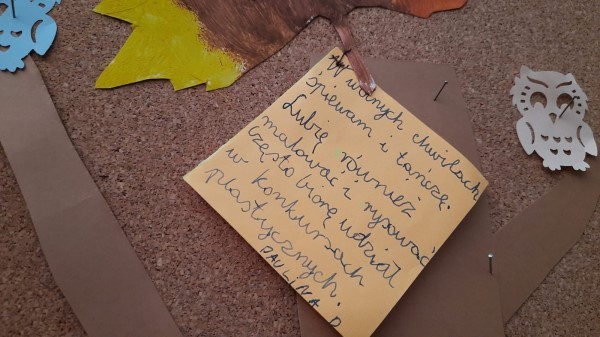 W wolnych chwilach
śpiewam i tańczę.
Lubię również
malować i rysować
Często biorę udział
w konkursach
plastycznych.
PAULINA P